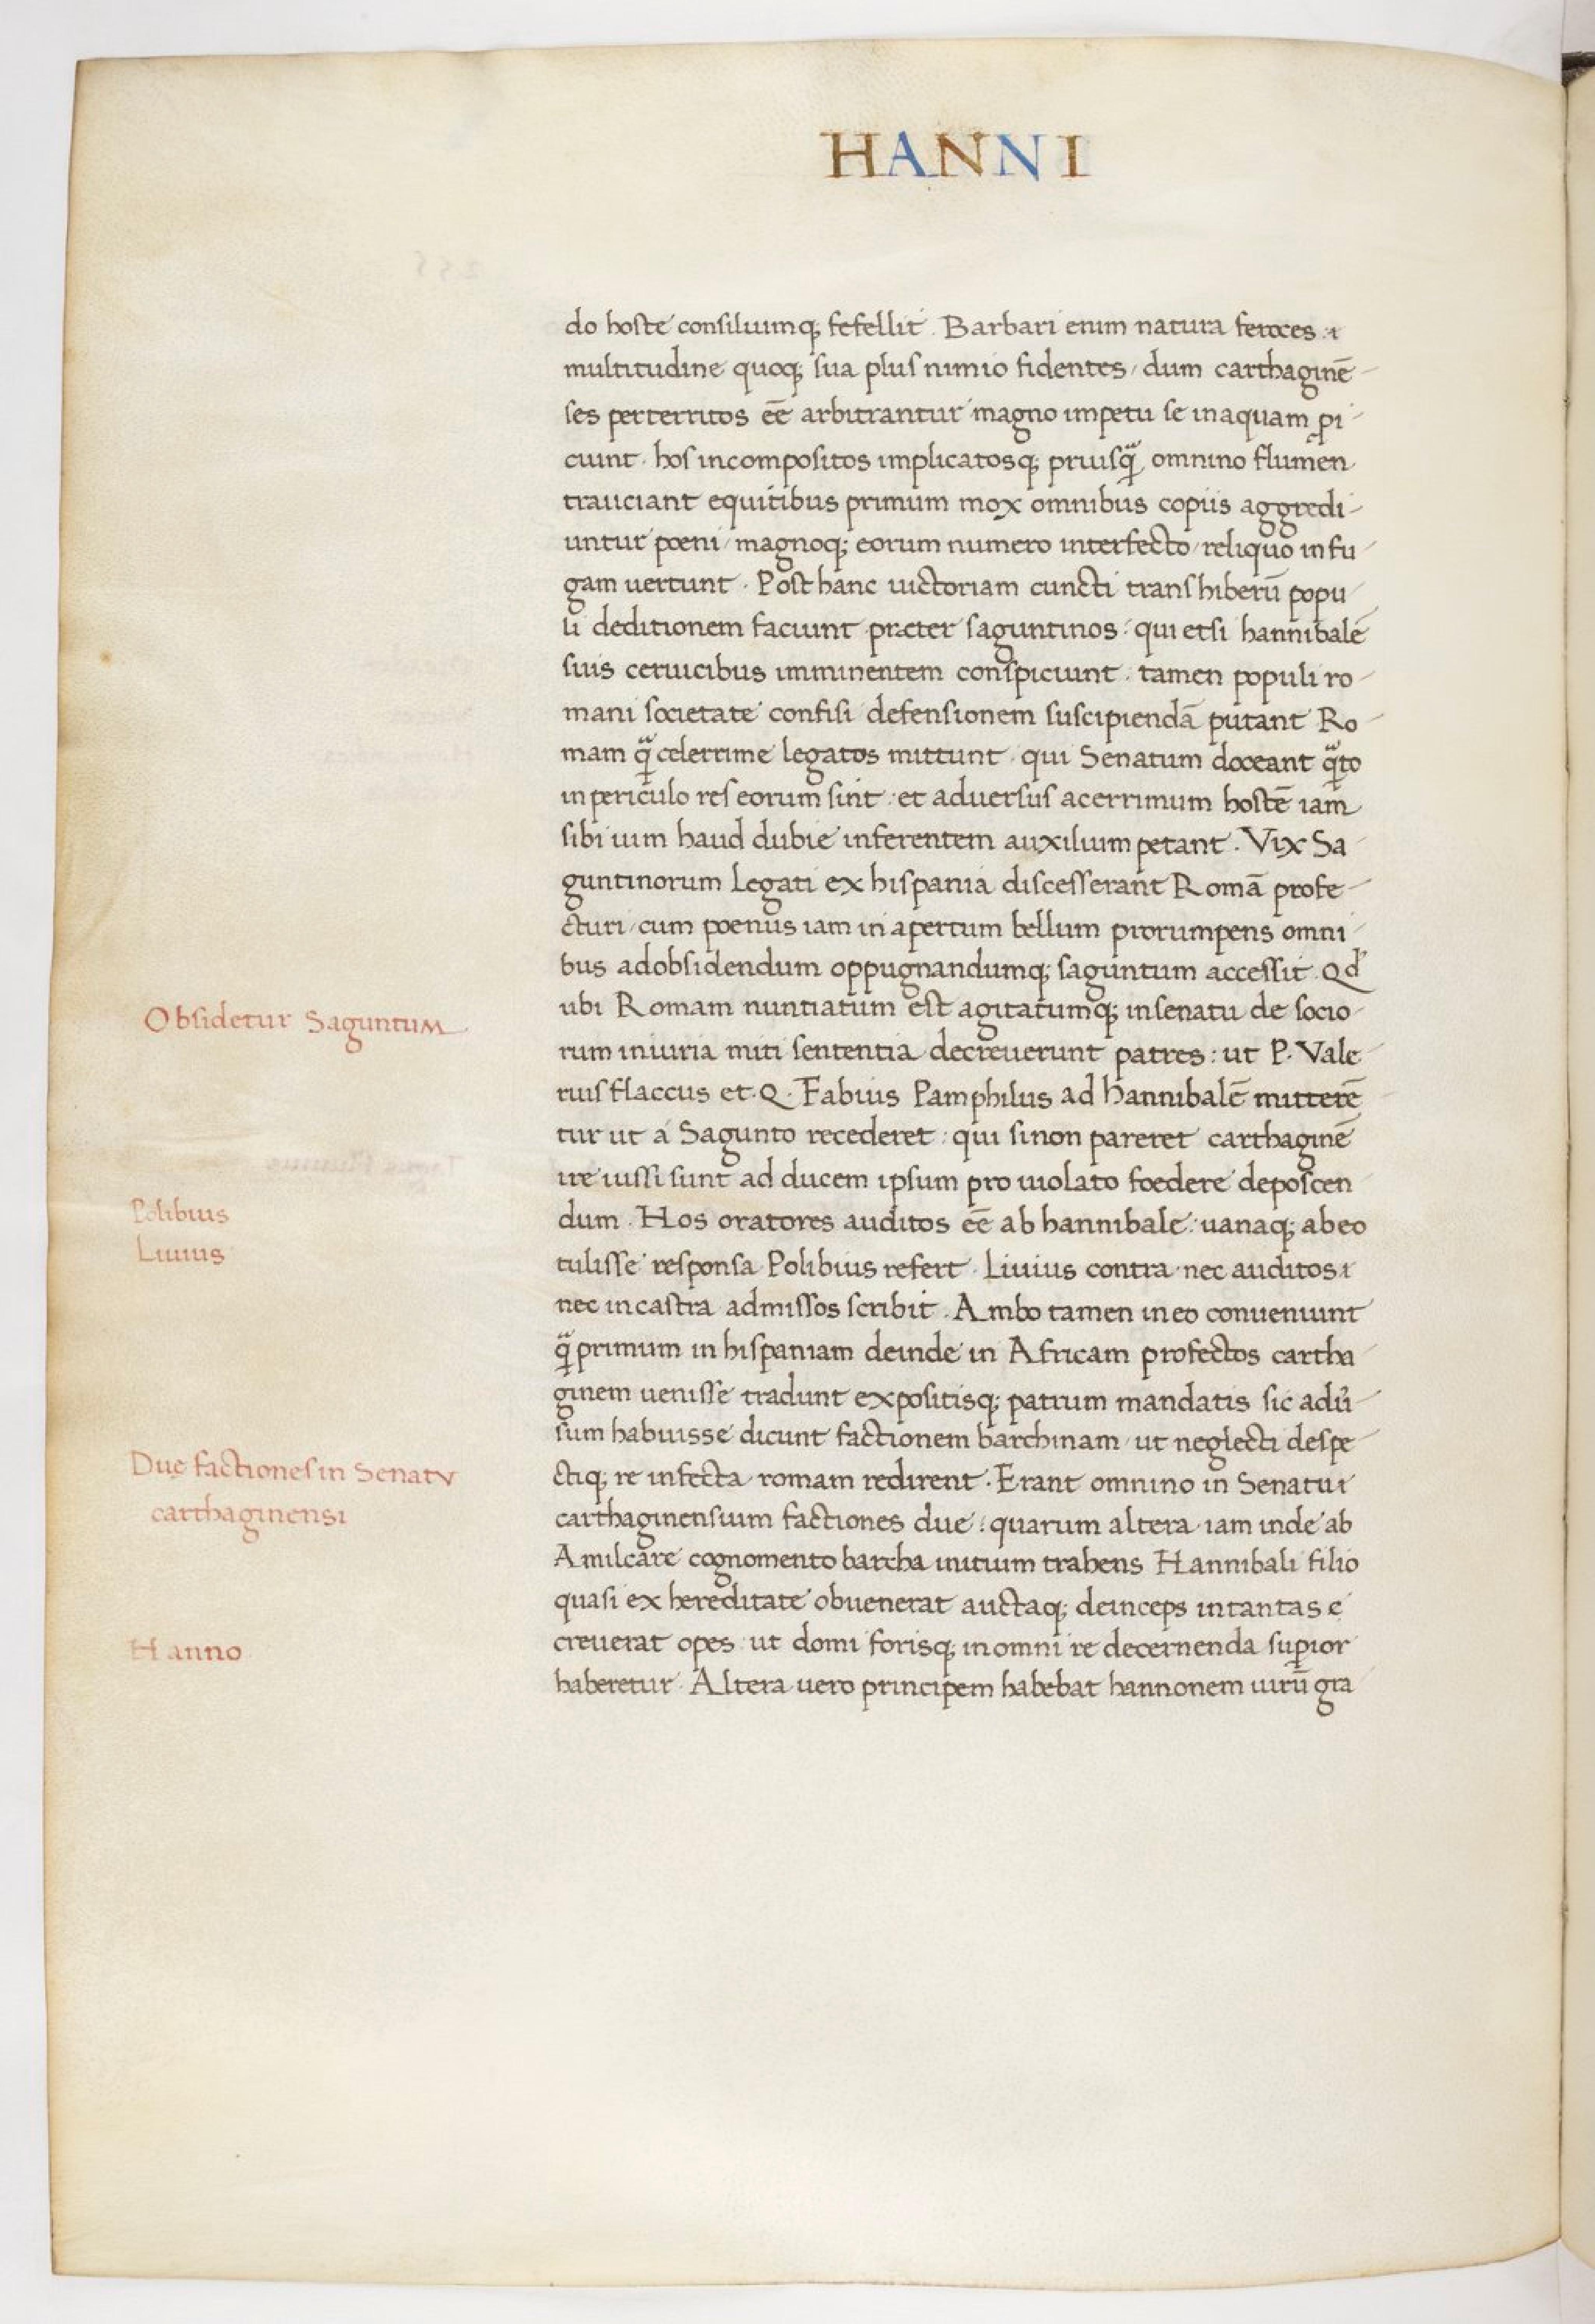 HANNI
do hoste consiliumq; fefellit. Barbari enim natura feroces
multitudine quoq; sua plus nimio fidentes, dum carthaginē-
ses perterritos eē arbitrantur magno impetu se inaquam ꝓi-
ciunt. hos incompositos implicatosq; priusq̃ omnino flumen
trauciant equitibus primum mox omnibus copiis aggredi-
untur poeni, magnoq; eorum numero interfecto, reliquo in fu-
gam uertunt. Post hanc uictoriam cuncti trans hiberū popu-
li deditionem faciunt præter saguntinos: qui etsi hannibalē
suis ceruicibus imminentem conspiciunt: tamen populi ro-
mani societate confisi defensionem suscipiendā putant Ro-
mam q̃ celerrime legatos mittunt, qui Senatum doceant q̃to
in periculo res eorum sint: et aduersus acerrimum hostē iam
sibi uim haud dubie inferentem auxilium petant. Vix Sa-
guntinorum Legati ex hispania discesserant Romā profe-
cturi, cum poenus iam in apertum bellum prorumpens omni-
bus adobsidendum oppugnandumq; saguntum accessit. Qd'
Obsidetur Saguntum
ubi Romam nuntiatum est agitatumq; in senatu de socio-
rum iniuria miti sententia decreuerunt patres: ut P. Vale-
rius flaccus et Q. Fabius Pamphilus ad hannibalē mitterē-
tur ut a Sagunto recederet: qui sinon pareret carthaginē
ire iussi sunt ad ducem ipsum pro uiolato foedere deposcen-
Polibius
dum. Hos oratores auditos eē ab hannibale: uanaq; ab eo
Liuius
tulisse responsa Polibius refert. Liuius contra nec auditos
nec in castra admissos scribit. Ambo tamen in eo conueniunt
q̃ primum in hispaniam deinde in Africam profectos cartha-
ginem uenisse tradunt expositisq; patrum mandatis sic adu̓-
sum habuisse dicunt factionem barchinam, ut neglecti despe-
Duę factiones in Senatu
ctiq; re infecta romam redirent. Erant omnino in Senatu
carthaginensi
carthaginensium factiones due: quarum altera iam inde ab
Amilcare cognomento barcha initium trahens Hannibali filio
quasi ex hereditate obuenerat auctaq; deinceps in tantas
Hanno
creuerat opes: ut domi forisq; in omni re decernenda sup̱ior
haberetur. Altera uero principem habebat hannonem uirū gra